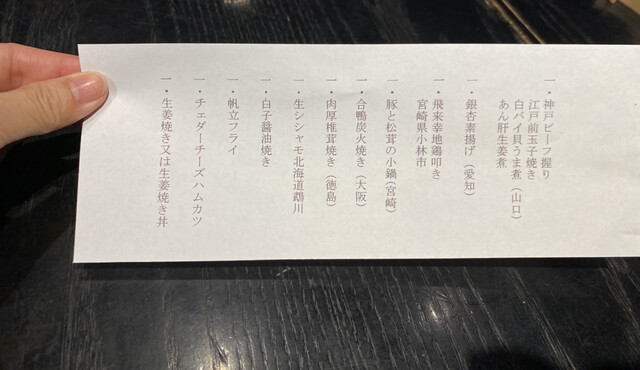 一・神戸ビーフ握り
江戸前玉子焼き
白バイ貝うま煮（山口）
あん肝生姜煮
一・銀杏素揚げ（愛知）
一・飛来幸地鶏叩き
宮崎県小林市
一・豚と松茸の小鍋（宮崎）
一・合鴨炭火焼き（大阪）
一・肉厚椎茸焼き（徳島）
一・生シシャモ北海道鵡川
一・白子醤油焼き
一・帆立フライ
一・チェダーチーズハムカツ
一・生姜焼き又は生姜焼き丼